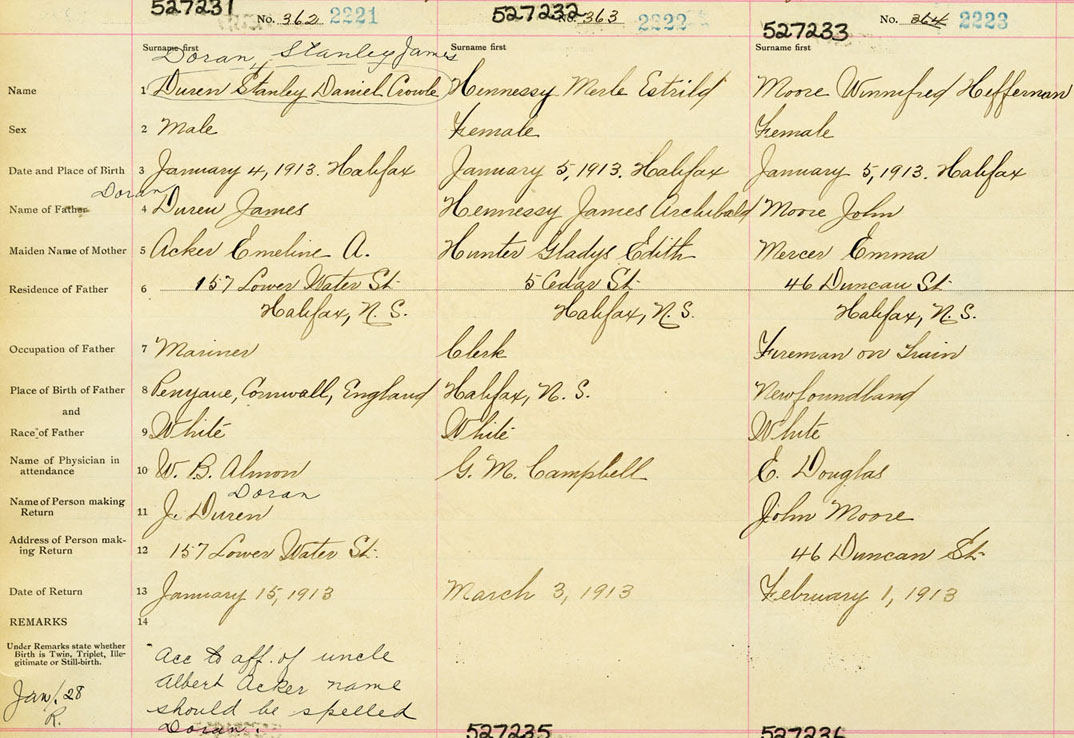 527231 527232 527233
No. 362 2221 363 2222 No. 364 2223
Surname first Surname first Surname first
Doran, Stanley James
Name 1 Duren Stanley Daniel Crowle Hennessy Merle Estrild Moore Winnifred Heffernan
Sex 2 Male Female Female
Date and Place of Birth 3 January 4, 1913. Halifax January 5, 1913. Halifax January 5, 1913. Halifax
Doran
Name of Father 4 Duren James Hennessy James Archibald Moore John
Maiden Name of Mother 5 Acker Emeline A. Hunter Gladys Edith Mercer Emma
Residence of Father 6 157 Lower Water St. 5 Cedar St. 46 Duncan St.
Halifax, N.S. Halifax, N.S. Halifax, N.S.
Occupation of Father 7 Mariner Clerk Fireman on Train
Place of Birth of Father 8 Cornwall, England Halifax, N.S. Newfoundland
and
Race of Father 9 White White White
Name of Physician in
attendance 10 W. B. Almon G. M. Campbell E. Douglas
Doran
Name of Person making
Return 11 J. Duren John Moore
Address of Person mak-
ing Return 12 157 Lower Water St. 46 Duncan St.
Date of Return 13 January 15, 1913 March 3, 1913 February 1, 1913
REMARKS 14
Under Remarks state whether
Birth is Twin, Triplet, Ille-
gitimate or Still-birth.
Acc to aff. of uncle
Albert Acker name
should be spelled
Doran.
Jan/28
R.
527235 527236